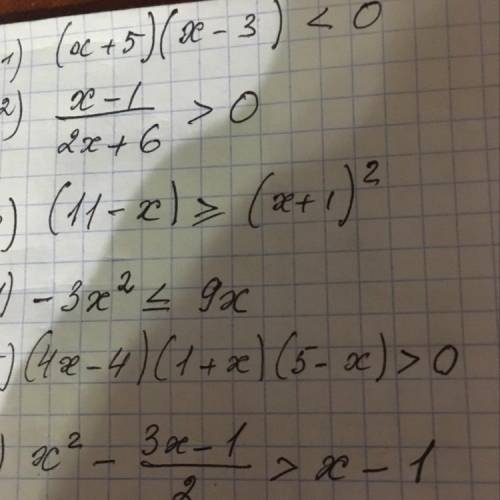 1) (x+5)(x-3) < 0
2) \frac{x-1}{2x+6} > 0
) (11-x) ≥ (x+1)²
) -3x² ≤ 9x
) (4x-4)(1+x)(5-x) > 0
) x² - \frac{3x-1}{2} > x-1